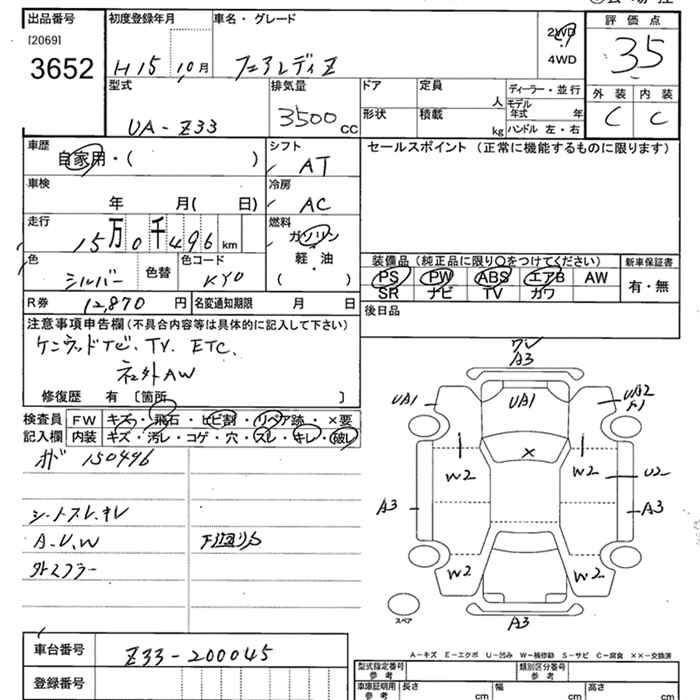 出品番号 初度登録年月 車名・グレード 評価点
[2069]
3652 H15 10月 フェアレディZ 2WD 4WD 3.5
型式 排気量 ドア 定員 人 ディーラー・並行 外装 内装
UA-Z33 3500cc 形状 積載 kg モデル年式 年 ハンドル 左・右 C C
車歴 シフト セールスポイント (正常に機能するものに限ります)
自家用・( ) AT
車検 冷房
年 月( 日) AC
走行 燃料
15万0千496km ガソリン
軽・油
( )
色 色替 色コード
シルバー KY0
装備品 (純正品に限り○をつけてください) 新車保証書
PS PW ABS エアB AW 有・無
SR ナビ TV カワ
R券 12,870円 名変通知期限 月 日 後日品
注意事項申告欄 (不具合内容等は具体的に記入して下さい)
ケンウッドナビ、TV. ETC.
社外AW
修復歴 有 〔箇所 〕
検査員 FW キズ・飛石・ヒビ割・リペア跡・×要
記入欄 内装 キズ・汚レ・コゲ・穴・スレ・キレ・破レ
150496
シートスレ、キレ
A.U.W 下廻りS
外マフラー
A3
UA1 UA1 UA2
W2 × W2 U2
A3 A3
W2 W2
スペア
A3
A-キズ E-エクボ U-凹み W-補修跡 S-サビ C-腐食 ××-交換済
車台番号 Z33-200045
登録番号
型式指定番号 参考 類別区分番号 参考
車庫証明用 参考 長さ cm 幅 cm 高さ cm